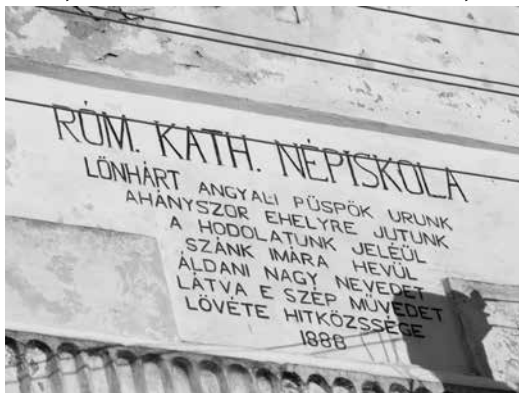 RÓM. KATH. NÉPISKOLA
LÖNHÁRT ANGYALI PÜSPÖK URUNK
AHÁNYSZOR EHELYRE JUTUNK
A HODOLATUNK JELÉÜL
SZÁNK IMÁRA HEVÜL
ÁLDANI NAGY NEVEDET
LÁTVA E SZÉP MŰVEDET
LÖVÉTE HITKÖZSSÉGE
1888